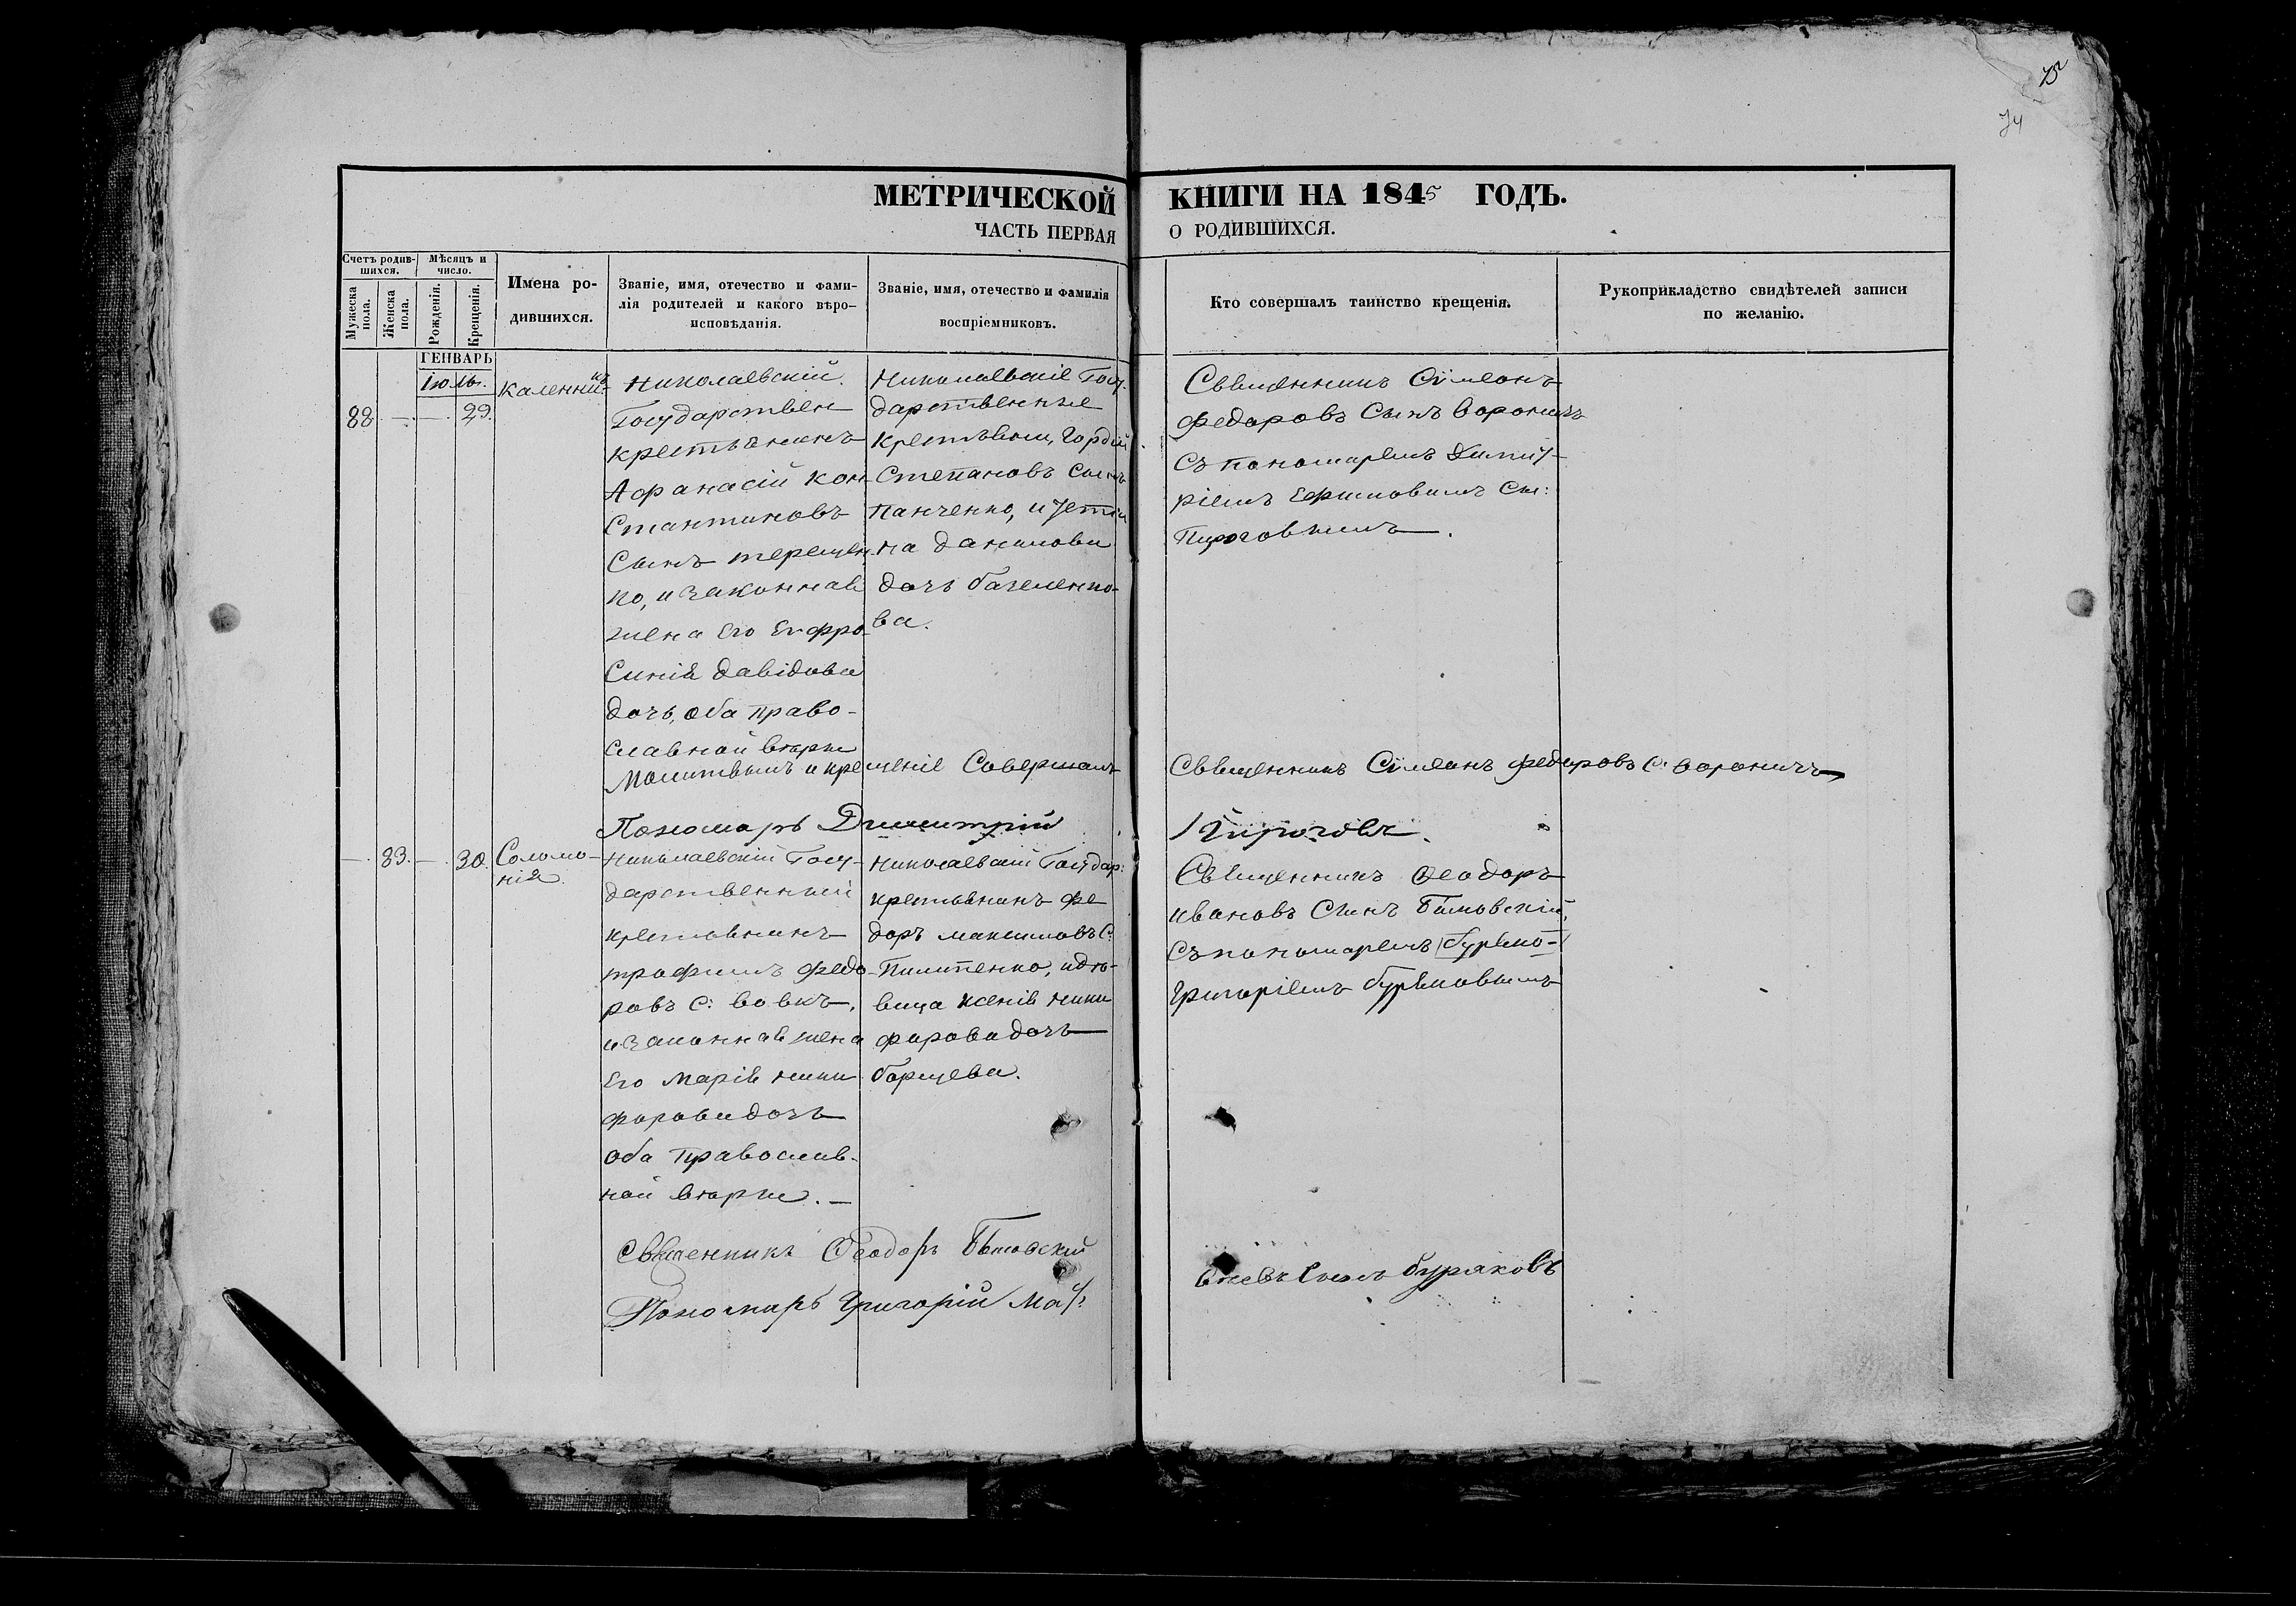 75
74
МЕТРИЧЕСКОЙ КНИГИ НА 1845 ГОДЪ.
ЧАСТЬ ПЕРВАЯ О РОДИВШИХСЯ.
Счетъ родив-
шихся.
Мужеска
пола.
Женска
пола.
Мѣсяцъ и
число.
Рожденія.
Крещенія.
Имена ро-
дившихся.
Званіе, имя, отечество и фами-
лія родителей и какого вѣро-
исповѣданія.
Званіе, имя, отечество и фамилія
воспріемниковъ.
Кто совершалъ таинство крещенія.
Рукоприкладство свидѣтелей записи
по желанію.
ГЕНВАРЬ
Іюль.
88 — — 29.
Каленникъ
Николаевскій
Государствен
крестьянинъ
Афанасій Кон-
стантиновъ
Сынъ терещен
ко, и законная
жена Его Евфро
Синія давідова
дочь, оба право-
славной вѣры
Николаевскіе Госу-
дарственные
крестьяны, Гордій
Степановъ Сынъ
Панченко, и Усти
на данилова
дочь
ва.
Священникъ Симеонъ
Федоровъ Сынъ Вороничъ
Съ пономаремъ Димит-
ріемъ Ефимовымъ Сы:
Пироговымъ.
Молитвылъ и крещеніе Совершалъ Священникъ Симеонъ Федоровъ С: Вороничъ
Пономарь Димитрій Пироговъ.
— 83. — 30.
Соломо-
нія
Николаевскій Госу-
дарственный
крестьянинъ
трофимъ Федо-
ровъ С: вовкъ,
и законная жена
Его Марія ники
форова дочь
оба Православ-
ной вѣры. —
Николаевскій Государ:
крестьянинъ Фе
доръ максимовъ С:
Пилипенко, и дѣ-
вица Ксенія ники
форова дочь
борщева.
Священникъ Феодоръ
ивановъ Сынъ
Съ пономаремъ
Григоріемъ Буряковымъ
Священникъ Феодоръ
Пономарь Григорій
Сынъ Буряковъ